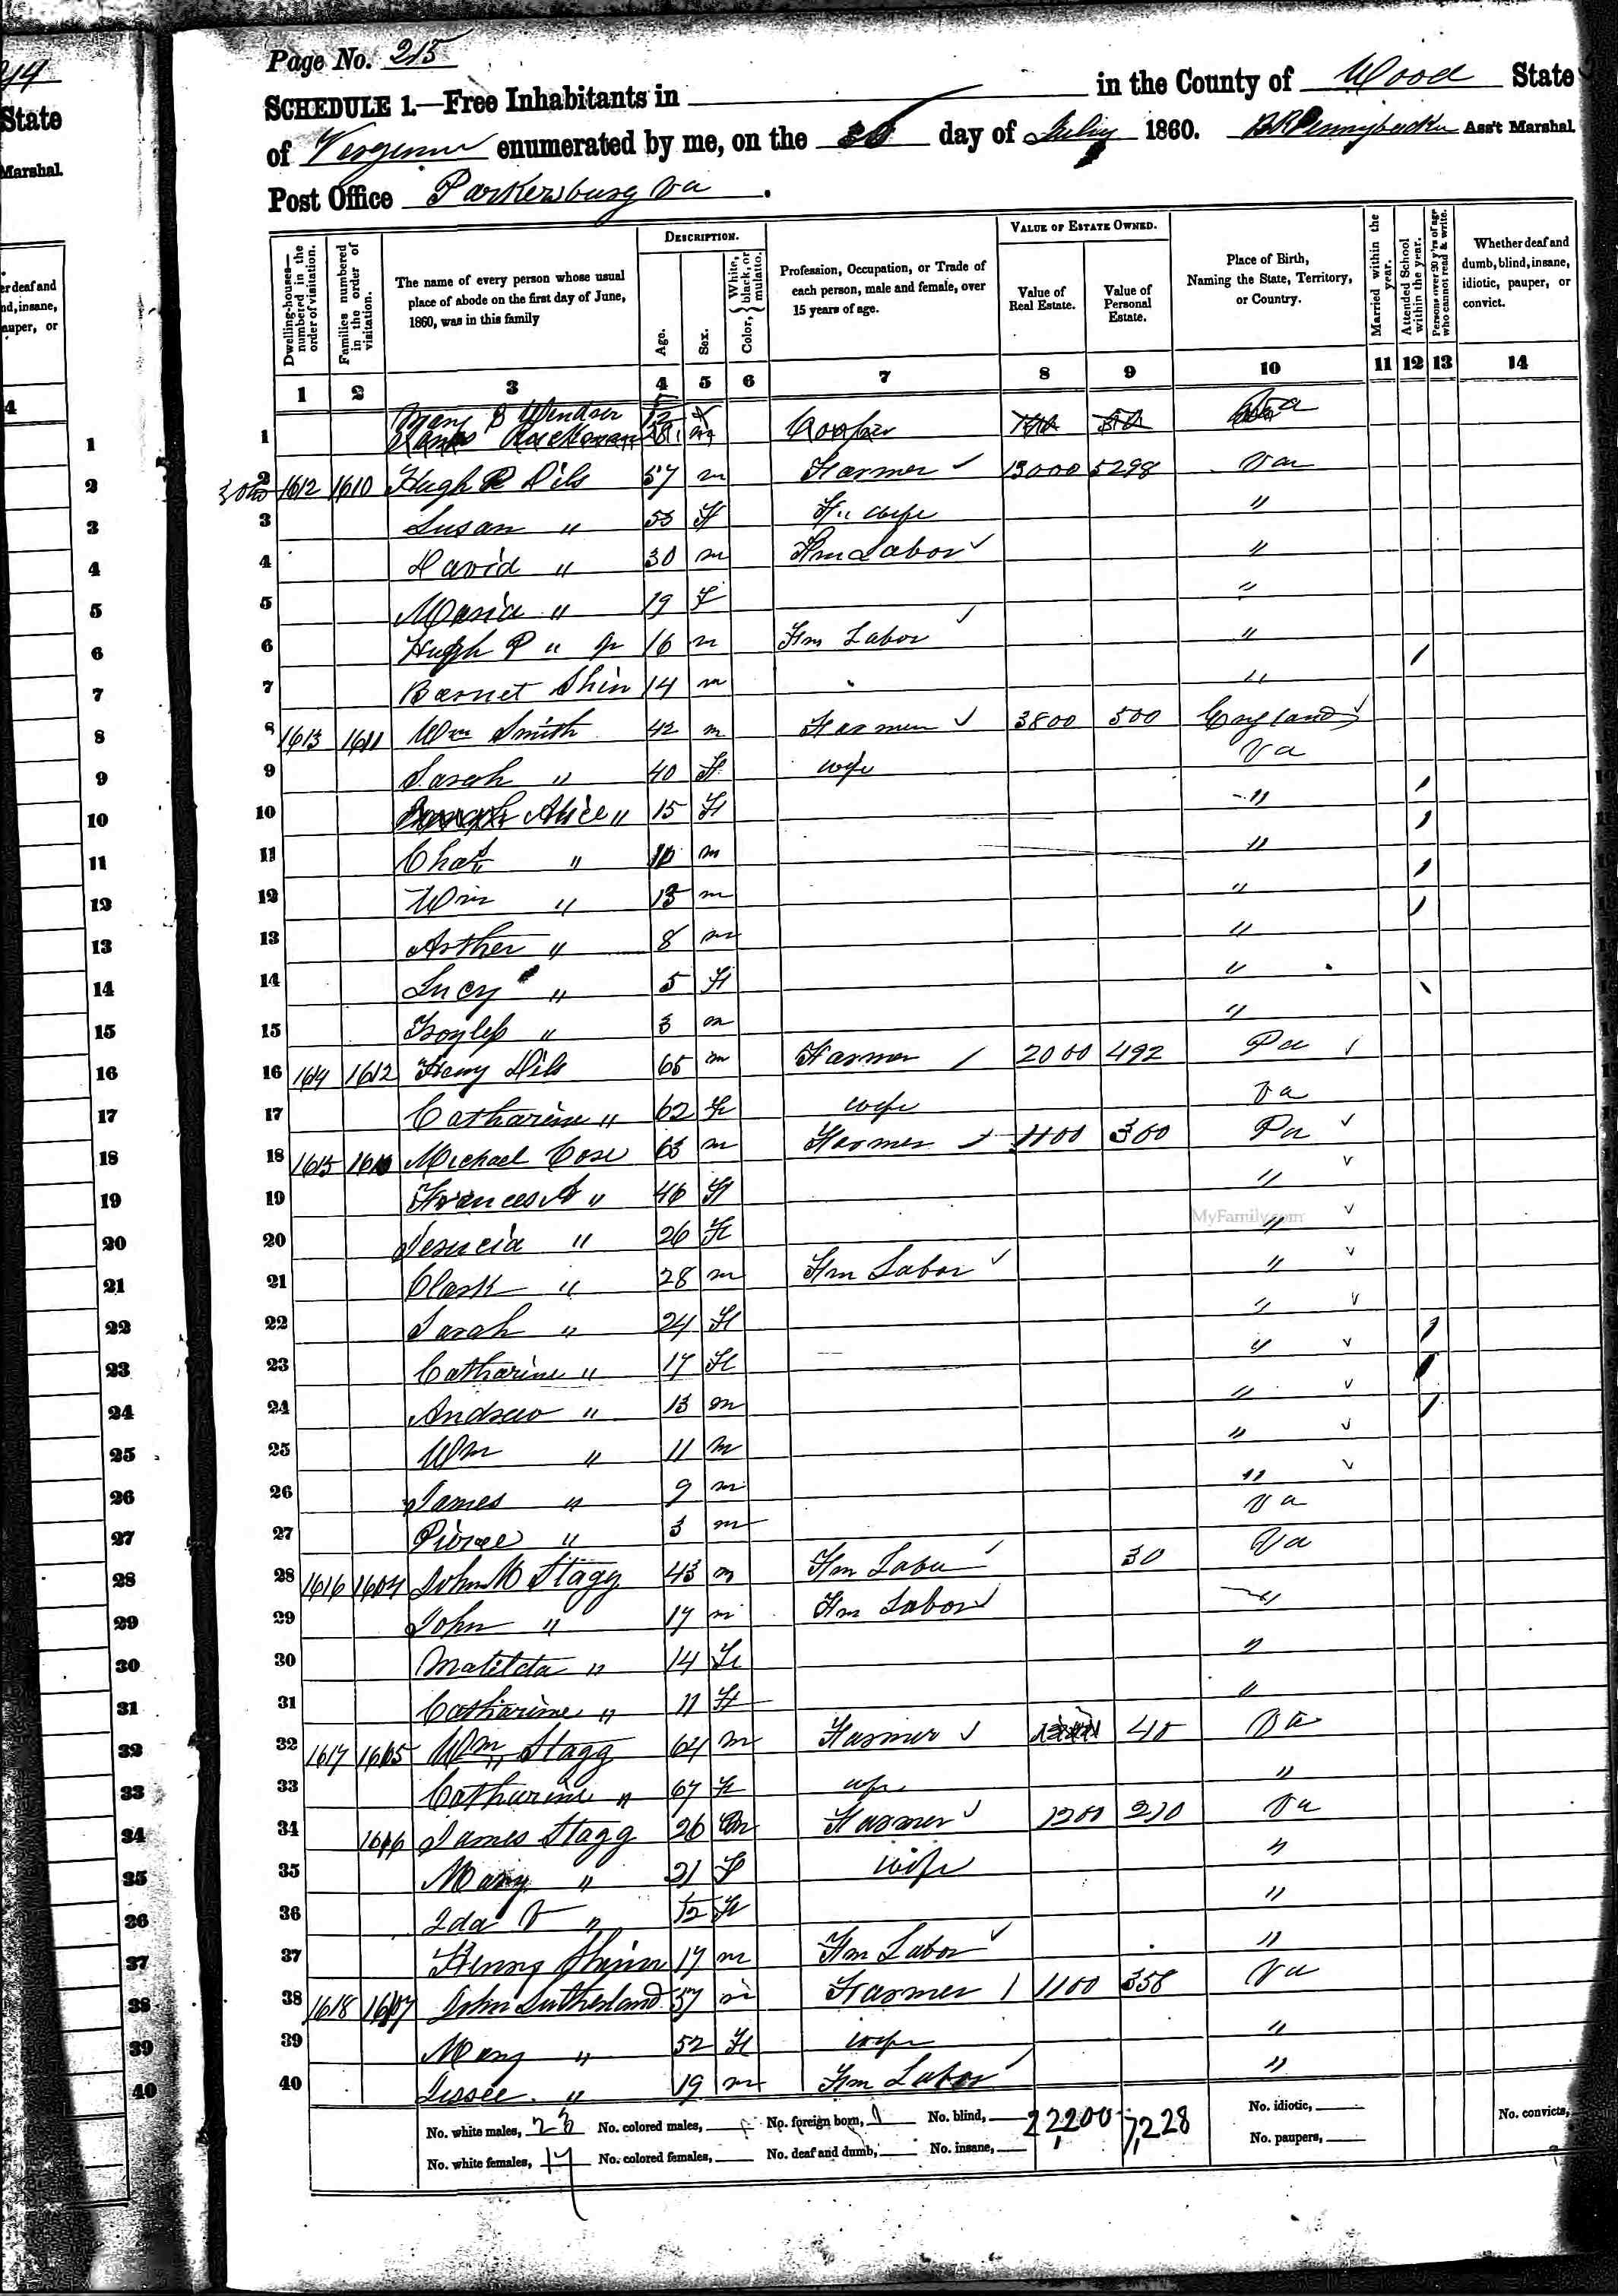 14
State
Marshal.
er deaf and
nd, insane,
auper, or
4
Page No. 215
SCHEDULE 1.—Free Inhabitants in in the County of Wood State
of Virginia enumerated by me, on the day of July 1860. Pennybacker Ass't Marshal.
Post Office Parkersburg Va.
Dwelling-houses—numbered in the order of visitation.
Families numbered in the order of visitation.
The name of every person whose usual place of abode on the first day of June, 1860, was in this family
DESCRIPTION.
Age.
Sex.
Color, White, black, or mulatto.
Profession, Occupation, or Trade of each person, male and female, over 15 years of age.
VALUE OF ESTATE OWNED.
Value of Real Estate.
Value of Personal Estate.
Place of Birth, Naming the State, Territory, or Country.
Married within the year.
Attended School within the year.
Persons over 20 y'rs of age who cannot read & write.
Whether deaf and dumb, blind, insane, idiotic, pauper, or convict.
1 2 3 4 5 6 7 8 9 10 11 12 13 14
Mary B Windsor 5/12
1 Cooper Va
2 1612 1610 Hugh P Dils 57 m Farmer ✓ 13000 5298 Va
3 Susan " 53 F wife "
4 David " 30 m Fm Labor ✓ "
5 Maria " 19 F "
6 Hugh P " Jr 16 m Fm Labor ✓ "
7 Barnet Shin 14 m " /
8 1613 1611 Wm Smith 42 m Farmer ✓ 3800 500 England ✓
9 Sarah " 40 F wife Va
10 Alice " 15 F " /
11 Chas " 10 m " /
12 Wm " 13 m " /
13 Arther " 8 m " /
14 Lucy " 5 F "
15 " 3 m "
16 1614 1612 Henry Dils 65 m Farmer / 2000 492 Pa ✓
17 Catharine " 62 F wife Va
18 1615 Michael Cose 63 m Farmer 1100 300 Pa ✓
19 Frances A " 46 F " ✓
20 " 26 F " ✓
MyFamily.com
21 Clark " 28 m Fm Labor ✓ " ✓
22 Sarah " 24 F " ✓
23 Catharine " 17 F " ✓ /
24 Andrew " 13 m " ✓ /
25 Wm " 11 m " ✓ /
26 James " 9 m " ✓
27 Pierce " 3 m Va
28 1616 1604 John M Stagg 43 m Fm Labor ✓ 30 Va
29 John " 17 m Fm Labor ✓ "
30 Matilda " 14 F "
31 Catharine " 11 F "
32 1617 1605 Wm Stagg 64 m Farmer ✓ 40 Va
33 Catharine " 67 F wife "
34 1606 James Stagg 26 m Farmer ✓ 1200 210 Va
35 Mary " 21 F wife "
36 Ida V " 1/12 F "
37 Henry Shinn 17 m Fm Labor ✓ "
38 1618 1607 John Sutherland 57 m Farmer / 1100 358 Va
39 Mary " 52 F wife "
40 Jessee " 19 m Fm Labor ✓ "
No. white males, 23 No. colored males, No. foreign born, 1 No. blind, 22,200 7,228 No. idiotic,
No. white females, 17 No. colored females, No. deaf and dumb, No. insane, No. paupers, No. convicts,